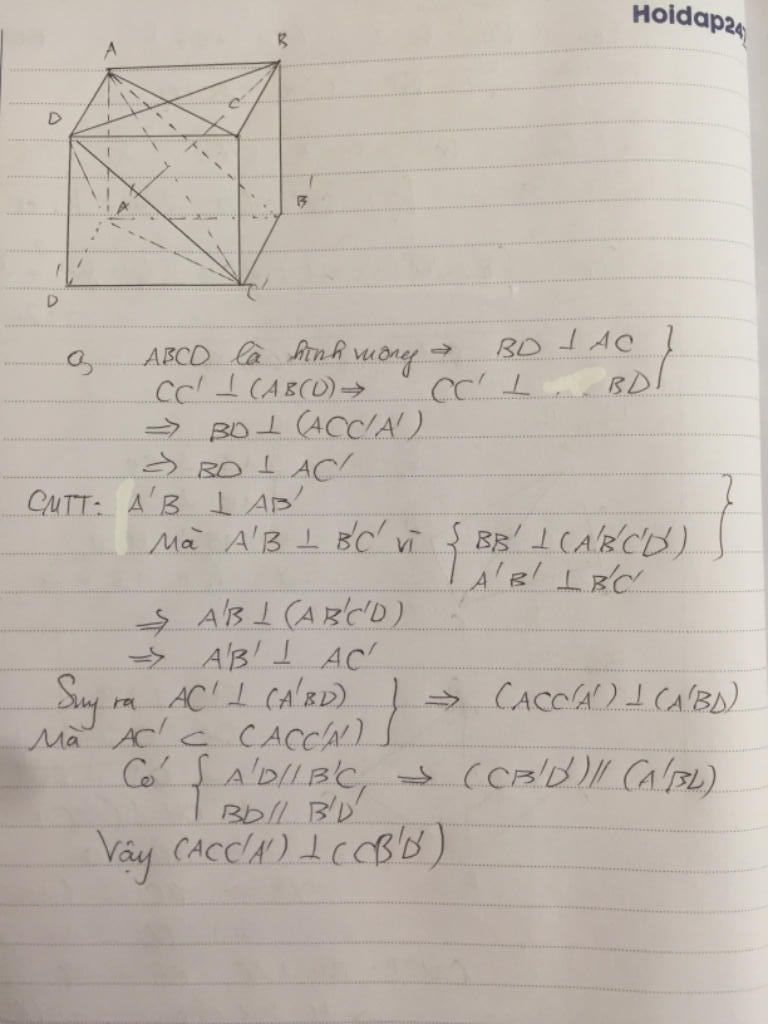 Hoidap247
A
B
D
C
A'
B'
D'
C'
a, ABCD là hình vuông ⇒ BD ⊥ AC }
CC' ⊥ (ABCD) ⇒ CC' ⊥ BD
⇒ BD ⊥ (ACC'A')
⇒ BD ⊥ AC'
CMTT: A'B ⊥ AB' }
Mà A'B ⊥ B'C' vì { BB' ⊥ (A'B'C'D')
A'B' ⊥ B'C'
⇒ A'B ⊥ (AB'C'D)
⇒ A'B' ⊥ AC'
Suy ra AC' ⊥ (A'BD) } ⇒ (ACC'A') ⊥ (A'BD)
Mà AC' ⊂ (ACC'A')
Có { A'D // B'C ⇒ (CB'D') // (A'BD)
BD // B'D'
Vậy (ACC'A') ⊥ (CB'D')